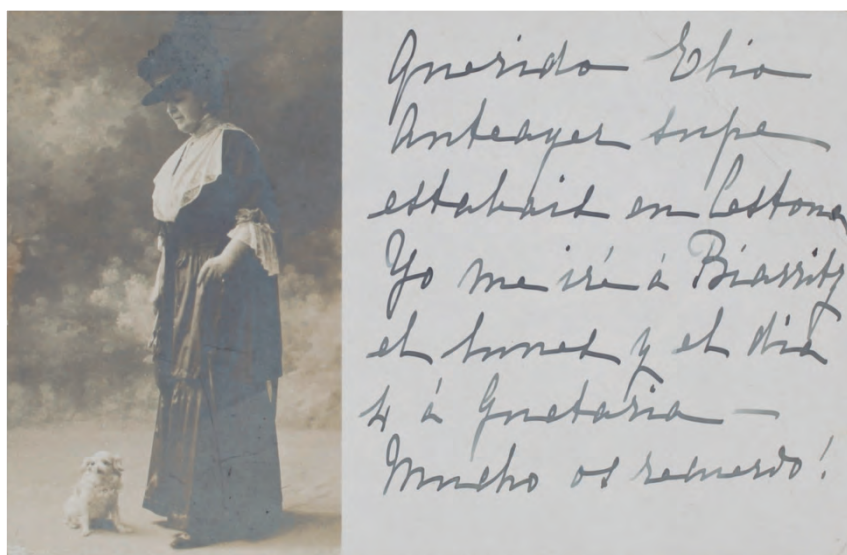 Querido Elio
Anteayer supe
estabais en Cestona
Yo me iré á Biarritz
el lunes y el dia
4 á Guetaria —
Mucho os recuerdo!